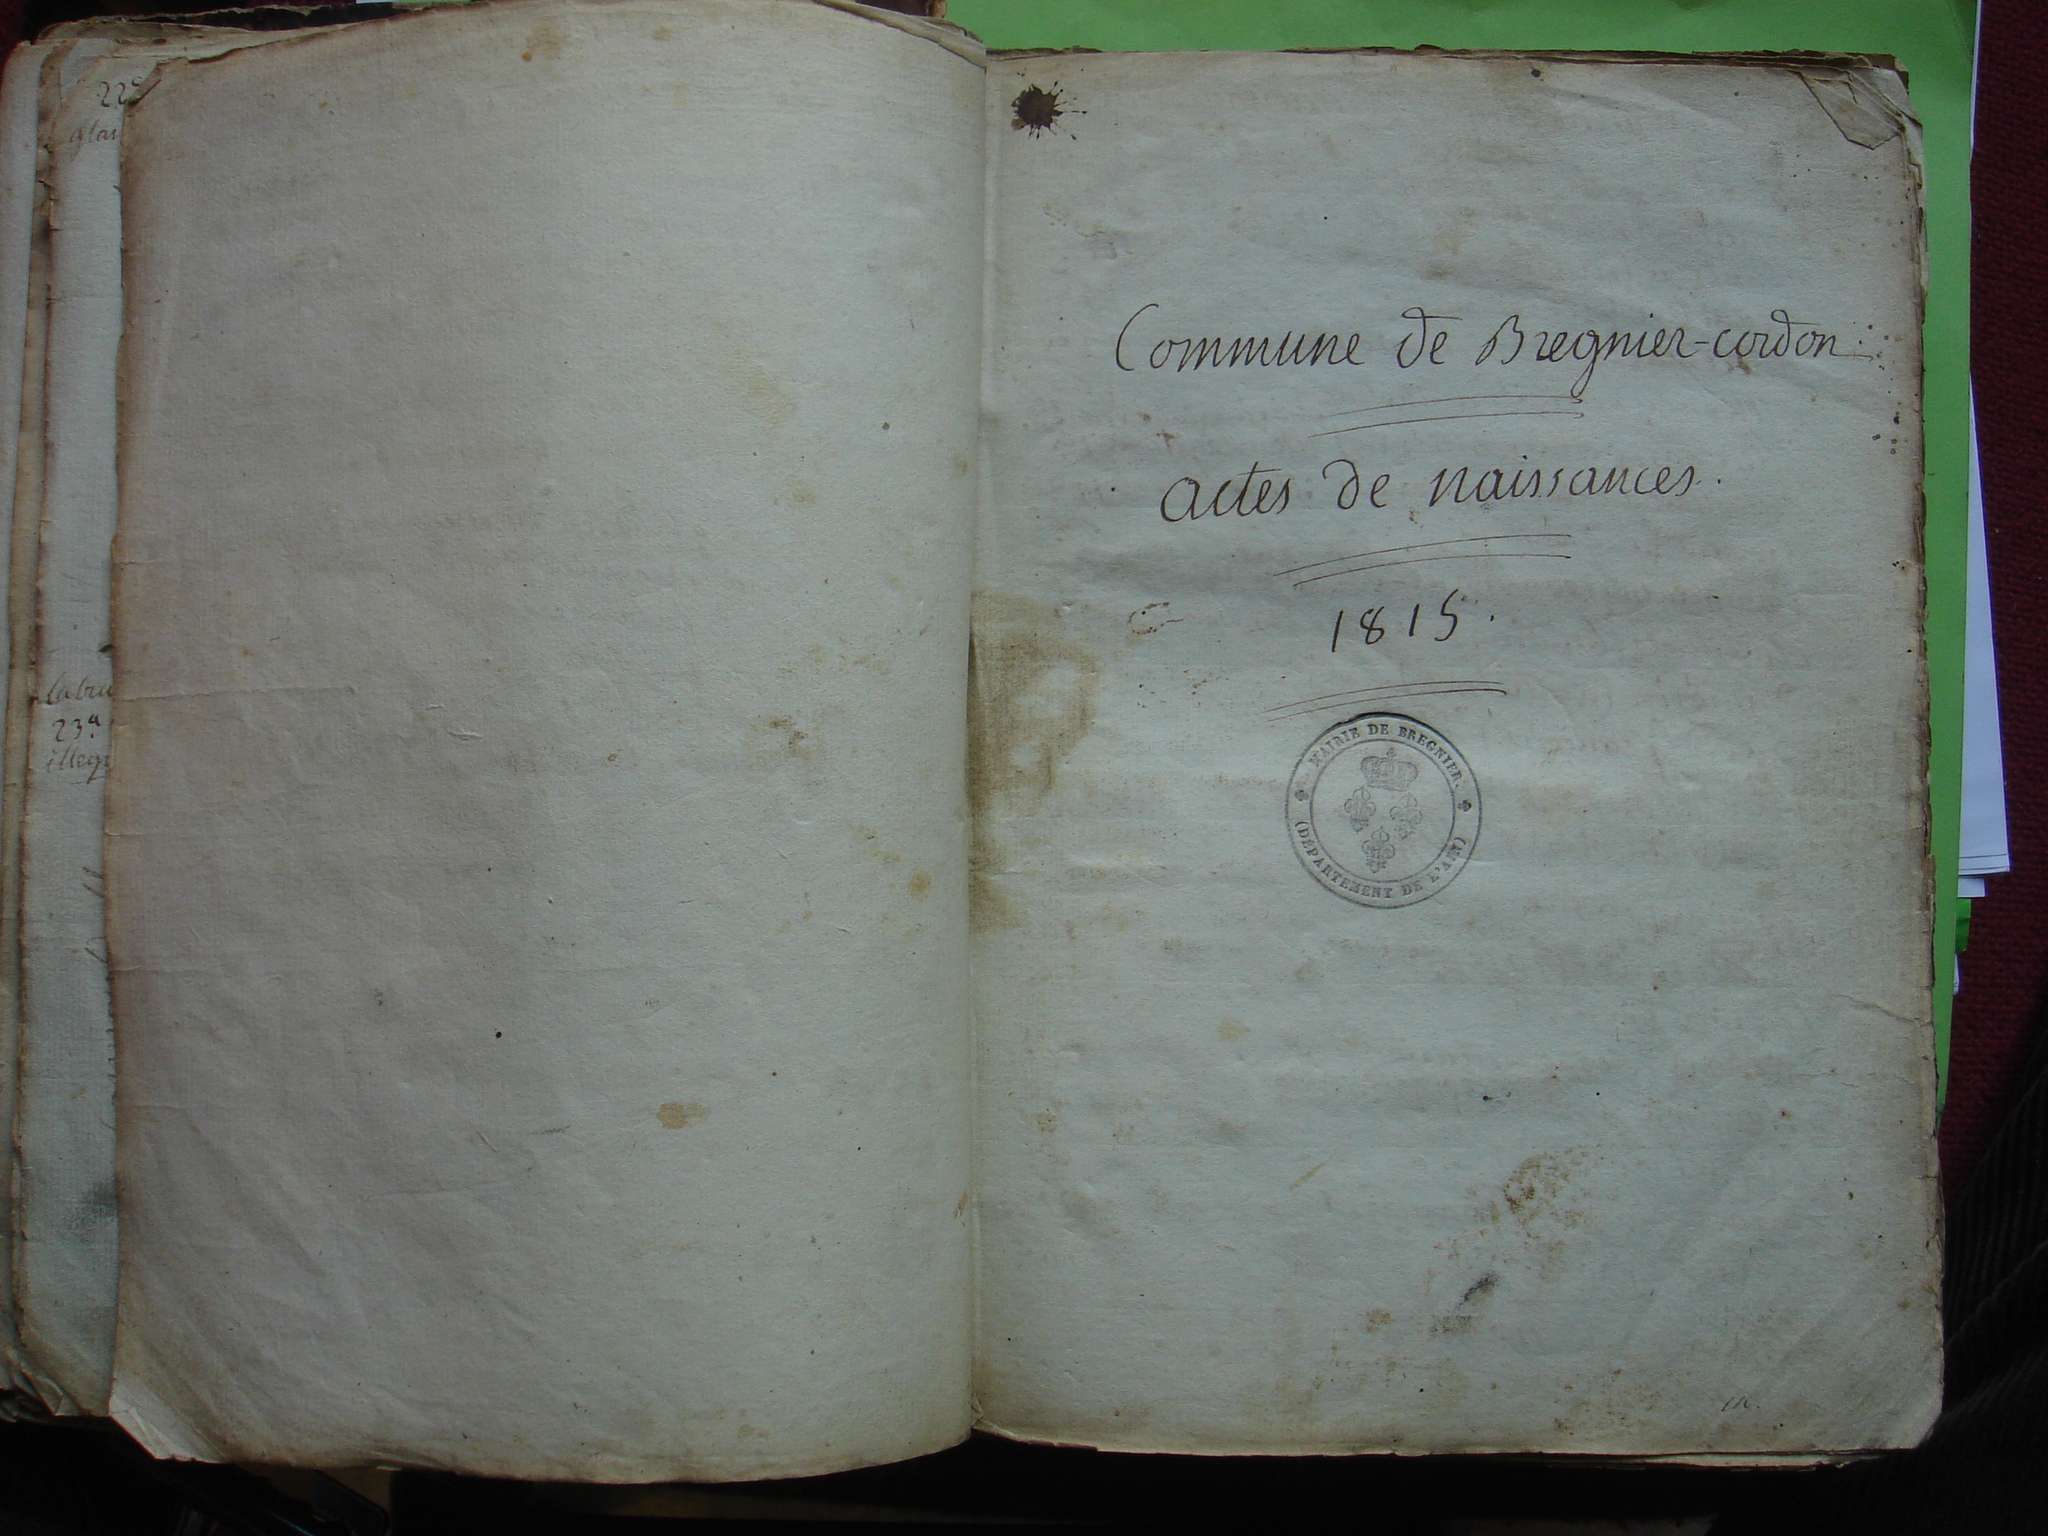 225
glai
labru
23.a
illegi
Commune de Bregnier-cordon
actes de naissances.
1815.
MAIRIE DE BREGNIER.
(DÉPARTEMENT DE L'AIN)